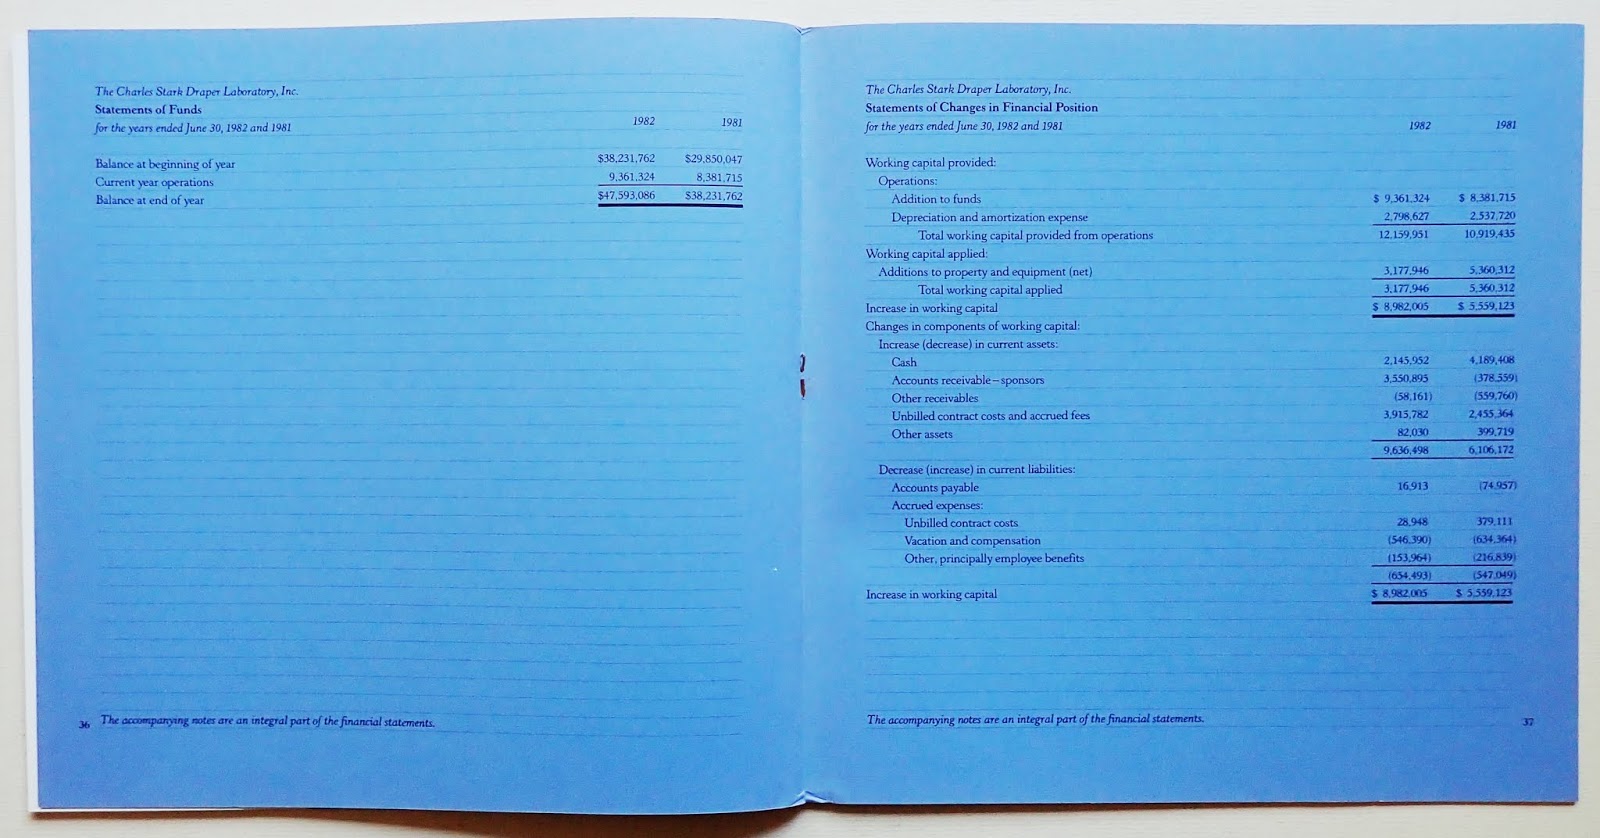 The Charles Stark Draper Laboratory, Inc.
Statements of Funds
for the years ended June 30, 1982 and 1981 1982 1981
Balance at beginning of year $38,231,762 $29,850,047
Current year operations 9,361,324 8,381,715
Balance at end of year $47,593,086 $38,231,762
36 The accompanying notes are an integral part of the financial statements.
The Charles Stark Draper Laboratory, Inc.
Statements of Changes in Financial Position
for the years ended June 30, 1982 and 1981 1982 1981
Working capital provided:
Operations:
Addition to funds $ 9,361,324 $ 8,381,715
Depreciation and amortization expense 2,798,627 2,537,720
Total working capital provided from operations 12,159,951 10,919,435
Working capital applied:
Additions to property and equipment (net) 3,177,946 5,360,312
Total working capital applied 3,177,946 5,360,312
Increase in working capital $ 8,982,005 $ 5,559,123
Changes in components of working capital:
Increase (decrease) in current assets:
Cash 2,145,952 4,189,408
Accounts receivable–sponsors 3,550,895 (378,559)
Other receivables (58,161) (559,760)
Unbilled contract costs and accrued fees 3,915,782 2,455,364
Other assets 82,030 399,719
9,636,498 6,106,172
Decrease (increase) in current liabilities:
Accounts payable 16,913 (74,957)
Accrued expenses:
Unbilled contract costs 28,948 379,111
Vacation and compensation (546,390) (634,364)
Other, principally employee benefits (153,964) (216,839)
(654,493) (547,049)
Increase in working capital $ 8,982,005 $ 5,559,123
The accompanying notes are an integral part of the financial statements. 37